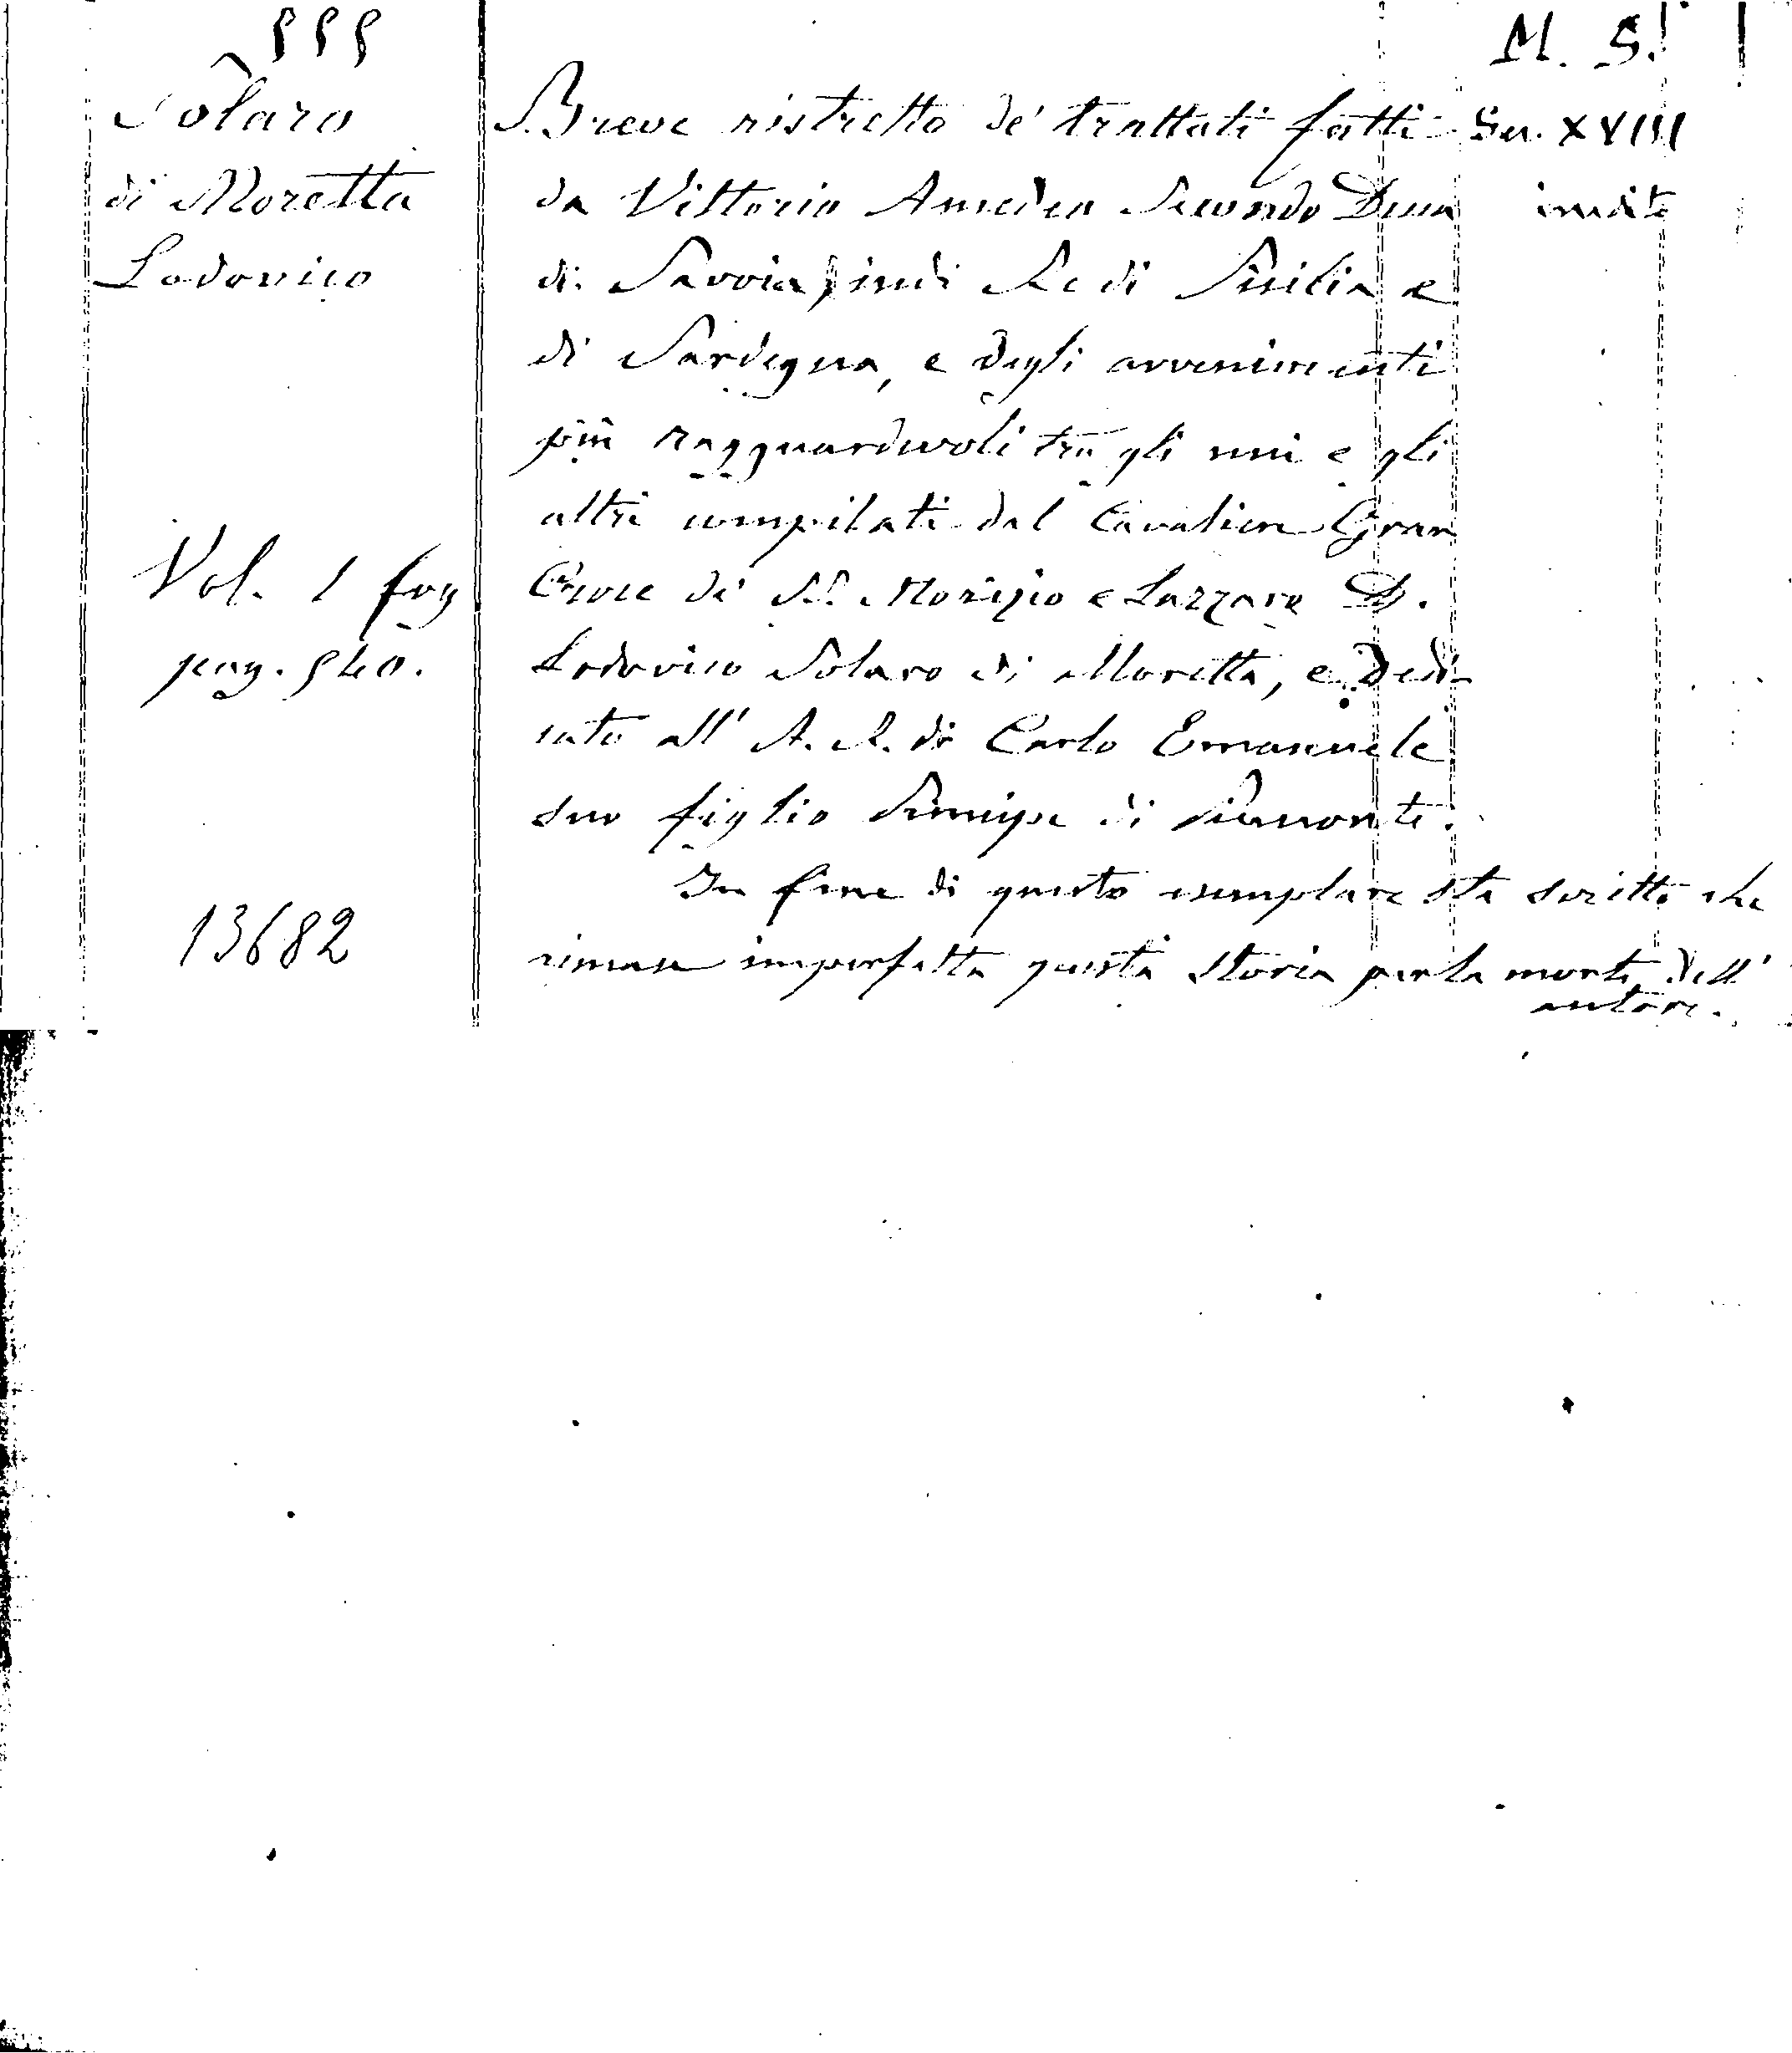 555
M. S.
Solaro
di Moretta
Lodovico
Vol. 1 fog
pag. 540.
13682
Breve ristretto de' trattati fatti
da Vittorio Amedeo Secondo Duca
di Savoia, indi Re di Sicilia e
di Sardegna, e degli avvenimenti
più ragguardevoli tra gli uni e gli
altri compilati dal Cavaliere Gran
Croce di SS. Morizio e Lazzaro D.
Lodovico Solaro di Moretta, e dedi-
cato all' A. R. di Carlo Emanuele
suo figlio Principe di Piemonte.
In fine di questo esemplare sta scritto che
rimase imperfetta questa storia per la morte dell'
autore.
Sec. XVIII
inedito